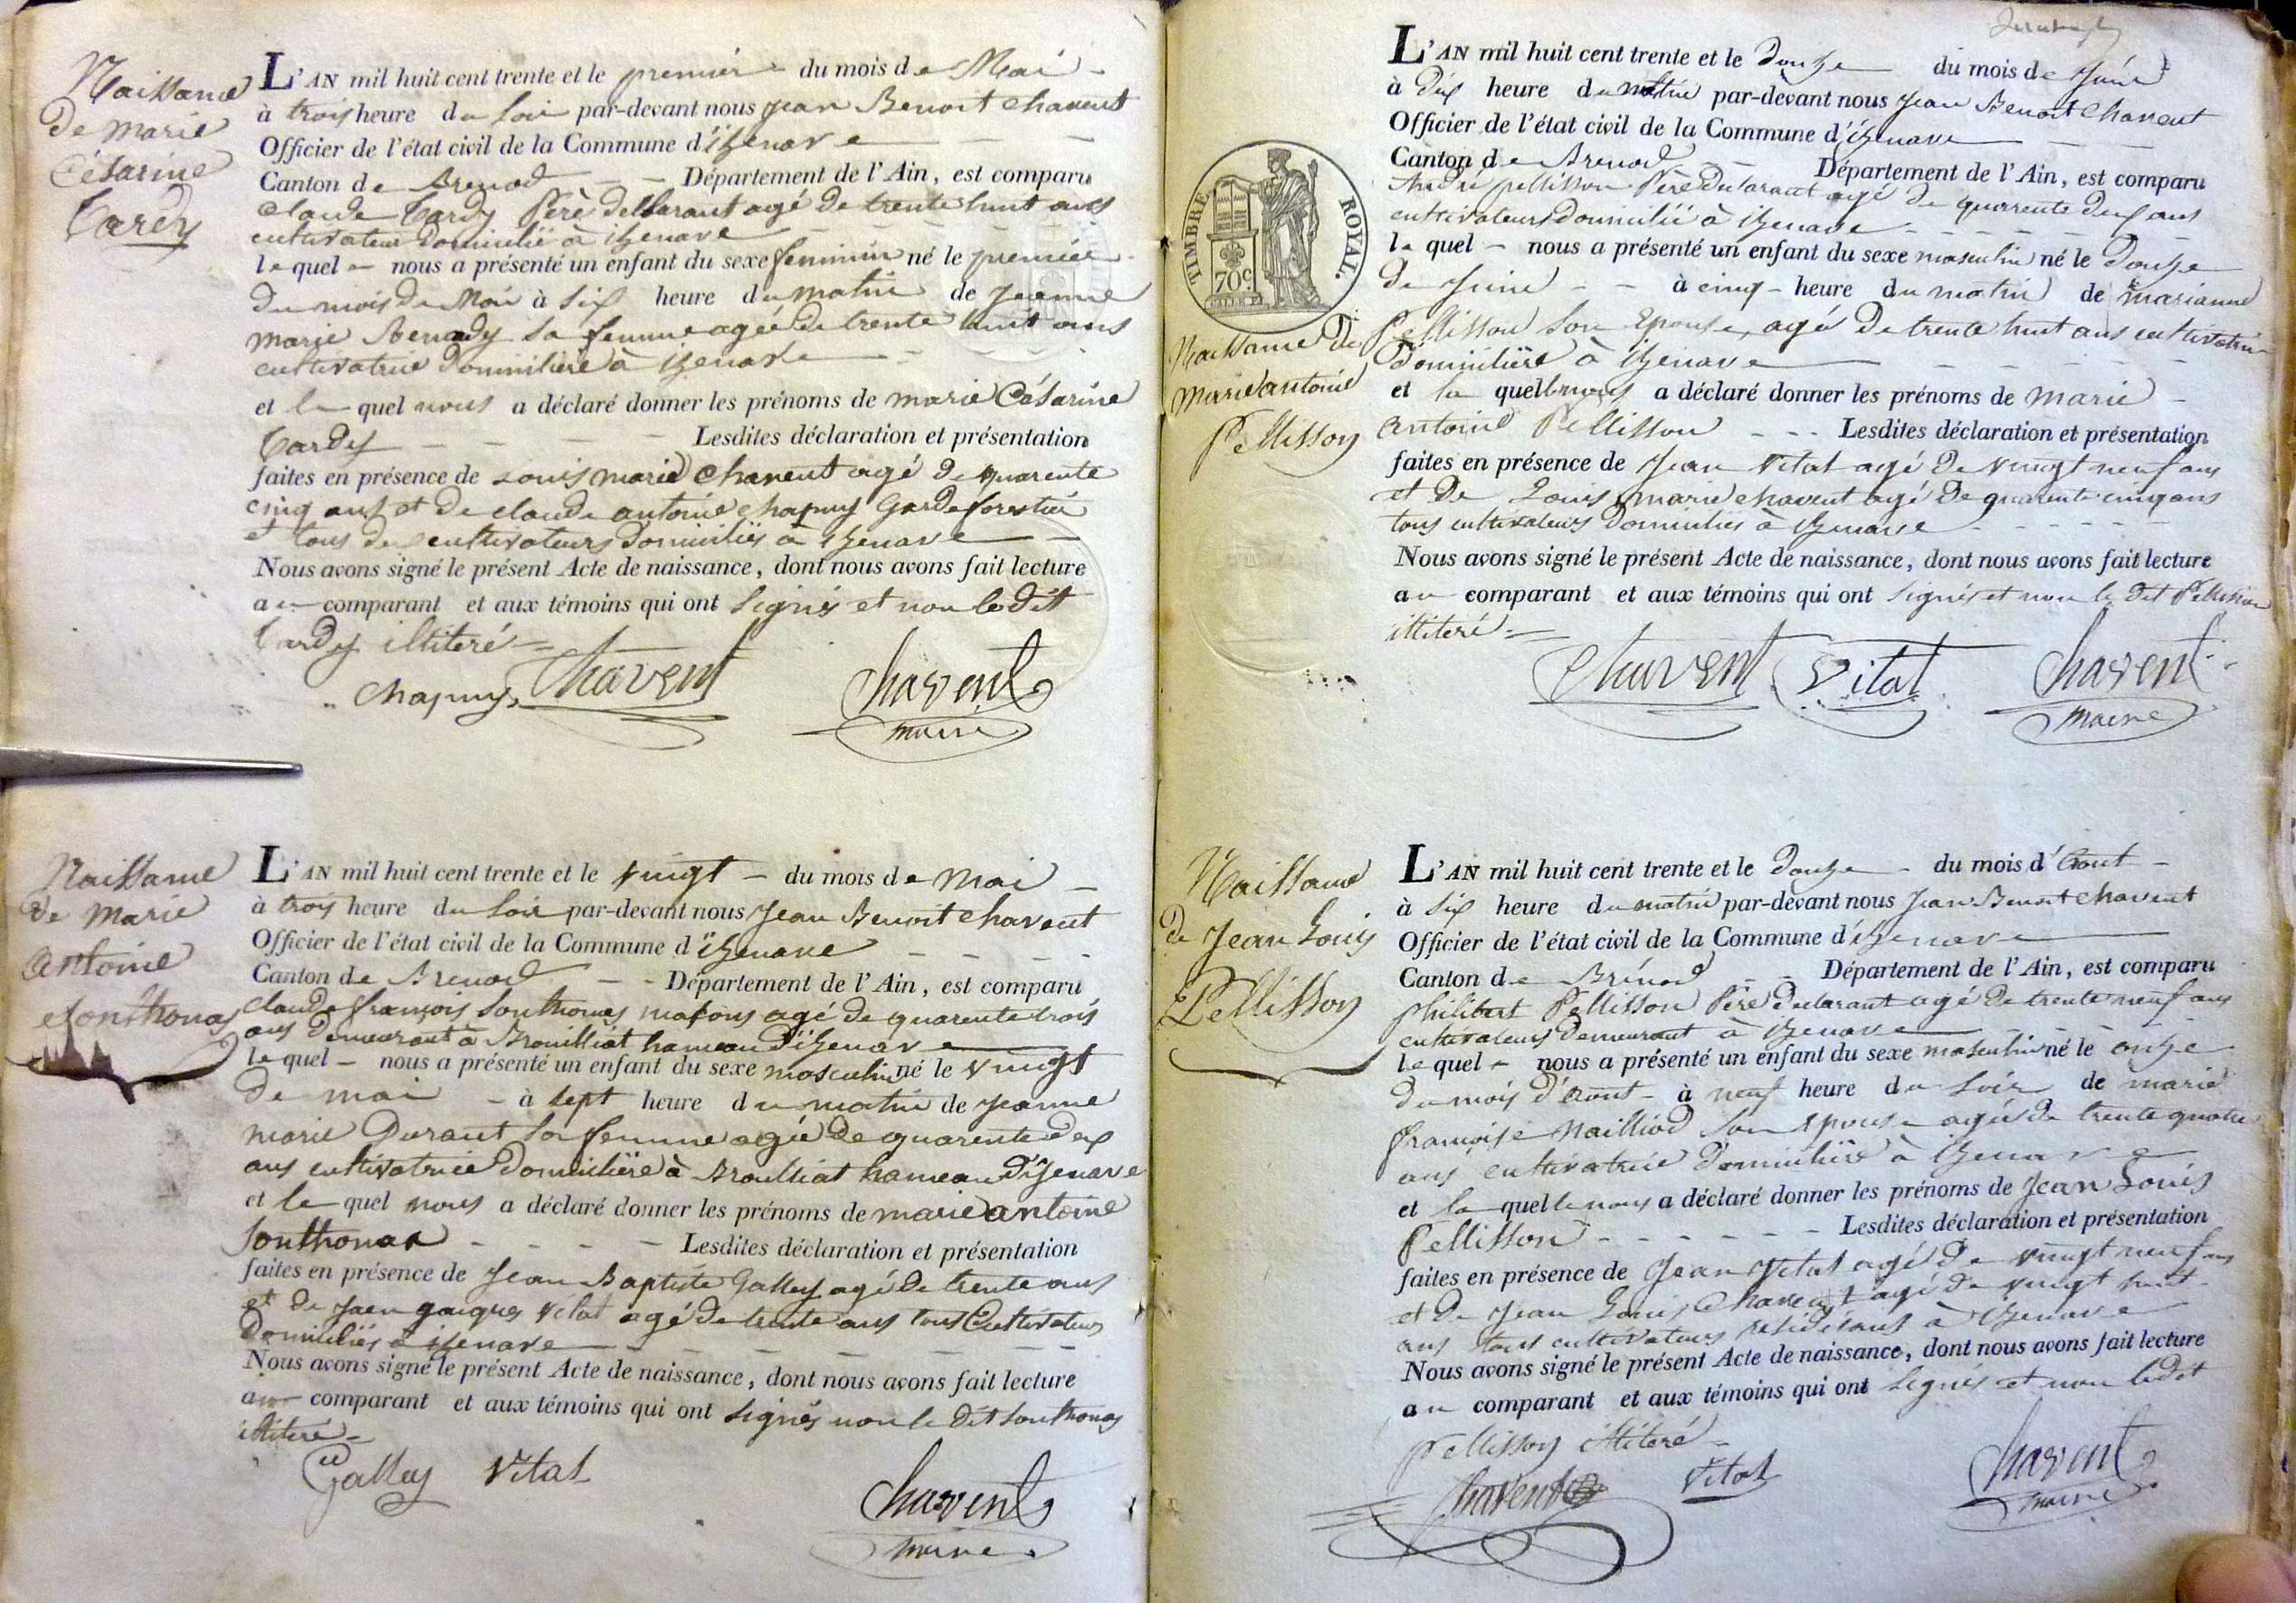 Naissance
de marie
Césarine
Tardy
L'AN mil huit cent trente et le premier du mois de Mai
à trois heure du soir par-devant nous Jean Benoit Chavent
Officier de l'état civil de la Commune d'izenave
Canton de Brenod Département de l'Ain, est comparu
Claude Tardy Père declarant agé de trente huit ans
cultivateur domicilié à izenave
lequel nous a présenté un enfant du sexe feminin né le premier
du mois de Mai à six heure du matin de Jeanne
marie Benady sa femme agée de trente huit ans
cultivatrice domicilière à izenave
et le quel nous a déclaré donner les prénoms de marie Césarine
Tardy Lesdites déclaration et présentation
faites en présence de Louis marie Chavent agé de quarente
cinq ans et de claude antoine chapuy Garde forestier
et tous deux cultivateurs domiciliés à izenave
Nous avons signé le présent Acte de naissance, dont nous avons fait lecture
au comparant et aux témoins qui ont signés et non le dit
Tardy illiteré
Chapuy Chavent Chavent
maire
Naissance
de Marie
antoine
Sonthonas
L'AN mil huit cent trente et le vingt du mois de Mai
à trois heure du soir par-devant nous Jean Benoit Chavent
Officier de l'état civil de la Commune d'izenave
Canton de Brenod Département de l'Ain, est comparu
Claude françois Sonthonas maçons agé de quarente trois
ans demeurant à Brouilliat hameau d'izenave
lequel nous a présenté un enfant du sexe masculin né le vingt
de mai à sept heure du matin de Jeanne
marie Durant sa femme agée de quarente deux
ans cultivatrice domicilière à Broulliat hameau d'izenave
et le quel nous a déclaré donner les prénoms de marie antoine
Sonthonas Lesdites déclaration et présentation
faites en présence de Jean Baptiste Galley agé de trente ans
et de Jaen gaiques Vitat agé de trente ans tous Cultivateurs
domiciliés à izenave
Nous avons signé le présent Acte de naissance, dont nous avons fait lecture
au comparant et aux témoins qui ont signés non le dit Sonthonas
illiteré
Galley Vitat Chavent
maire
TIMBRE ROYAL.
70c.
Naissance de
marie antoine
Pellisson
L'AN mil huit cent trente et le douze du mois de Juin
à dix heure du matin par-devant nous Jean Benoit Chavent
Officier de l'état civil de la Commune d'izenave
Canton de Brenod Département de l'Ain, est comparu
André pellisson Père declarant agé de quarente deux ans
cultivateurs domicilié à izenave
lequel nous a présenté un enfant du sexe masculin né le douze
de Juin à cinq heure du matin de marianne
Pellisson son Epouse, agé de trente huit ans cultivatrice
domicilière à izenave
et la quelle nous a déclaré donner les prénoms de Marie
antoine Pellisson Lesdites déclaration et présentation
faites en présence de Jean Vitat agé de vingt neuf ans
et de Louis marie chavent agé de quarente cinq ans
tous cultivateurs domiciliés à izenave
Nous avons signé le présent Acte de naissance, dont nous avons fait lecture
au comparant et aux témoins qui ont signés et non le dit Pellisson
illiteré
Chavent Vitat Chavent
maire
Naissance
de Jean Louis
Pellisson
L'AN mil huit cent trente et le douze du mois d'aout
à six heure du matin par-devant nous Jean Benoit Chavent
Officier de l'état civil de la Commune d'izenave
Canton de Brénod Département de l'Ain, est comparu
philibert Pellisson Père declarant agé de trente neuf ans
cultivateurs demeurant à izenave
lequel nous a présenté un enfant du sexe masculin né le onze
du mois d'aout à neuf heure du soir de marie
françoise Nailliod son Epouse agée de trente quatre
ans cultivatrice domicilière à izenave
et la quelle nous a déclaré donner les prénoms de Jean Louis
Pellisson Lesdites déclaration et présentation
faites en présence de Jean Vitat agé de vingt neuf ans
et de Jean Louis Chavent agé de vingt huit
ans tous cultivateurs à izenave
Nous avons signé le présent Acte de naissance, dont nous avons fait lecture
au comparant et aux témoins qui ont signés et non ledit
Pellisson illiteré
Chavent Vitat Chavent
maire